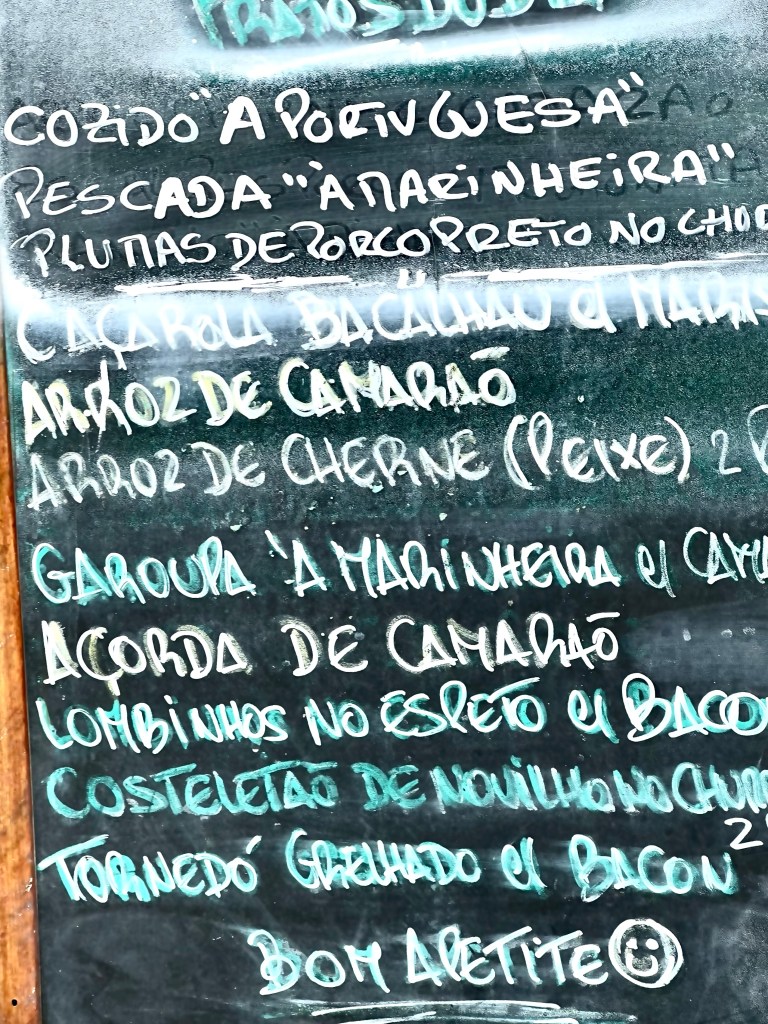 PRATOS DO DIA
COZIDO "A PORTUGUESA"
PESCADA "À MARINHEIRA"
PLUMAS DE PORCO PRETO NO CHUR
CAÇAROLA BACALHAU C/ MARIS
ARROZ DE CAMARAÕ
ARROZ DE CHERNE (PEIXE) 2 P
GAROUPA 'A MARINHEIRA C/ CAMA
AÇORDA DE CAMARAÕ
LOMBINHOS NO ESPETO C/ BACON
COSTELETAÕ DE NOVILHO NO CHURR
TORNEDÓ GRELHADO C/ BACON
BOM APETITE